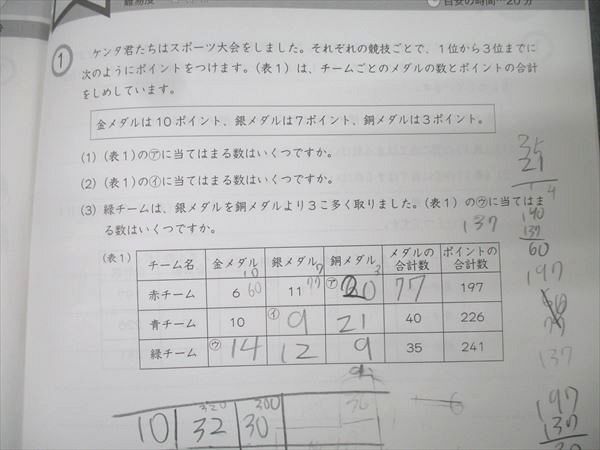 難易度
目安の時間…20分
1
ケンタ君たちはスポーツ大会をしました。それぞれの競技ごとで、1位から3位までに
次のようにポイントをつけます。(表1)は、チームごとのメダルの数とポイントの合計
をしめしています。
金メダルは10ポイント、銀メダルは7ポイント、銅メダルは3ポイント。
(1) (表1)の㋐に当てはまる数はいくつですか。
(2) (表1)の㋑に当てはまる数はいくつですか。
(3) 緑チームは、銀メダルを銅メダルより3こ多く取りました。(表1)の㋒に当てはま
る数はいくつですか。
137
35
21
4
140
137
60
197
137
197
137
(表1)
チーム名 金メダル 銀メダル 銅メダル メダルの合計数 ポイントの合計数
10 7 3
赤チーム 6 60 11 77 ㋐ 20 77 197
青チーム 10 ㋑ 9 21 40 226
緑チーム ㋒ 14 12 9 35 241
320 300
10 32 30